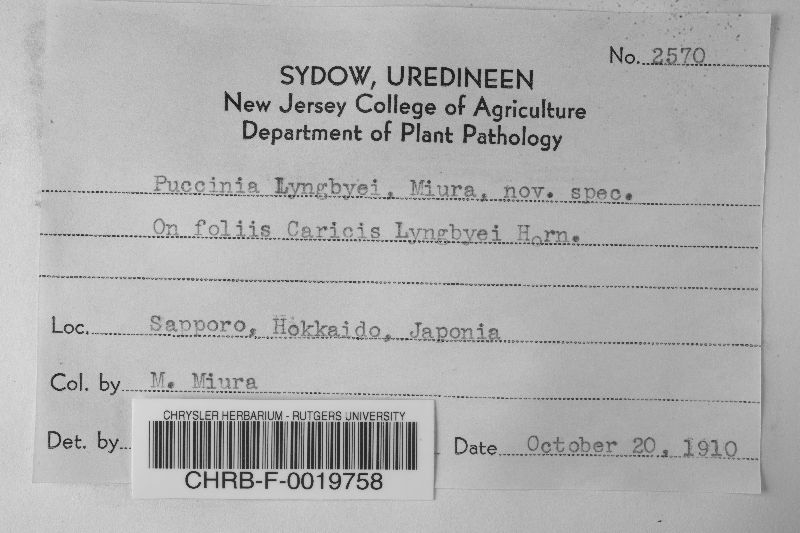 No. 2570
SYDOW, UREDINEEN
New Jersey College of Agriculture
Department of Plant Pathology
Puccinia Lyngbyei, Miura, nov. spec.
On foliis Caricis Lyngbyei Horn.
Loc. Sapporo, Hokkaido, Japonia
Col. by M. Miura
Det. by
Date October 20, 1910
CHRYSLER HERBARIUM - RUTGERS UNIVERSITY
CHRB-F-0019758